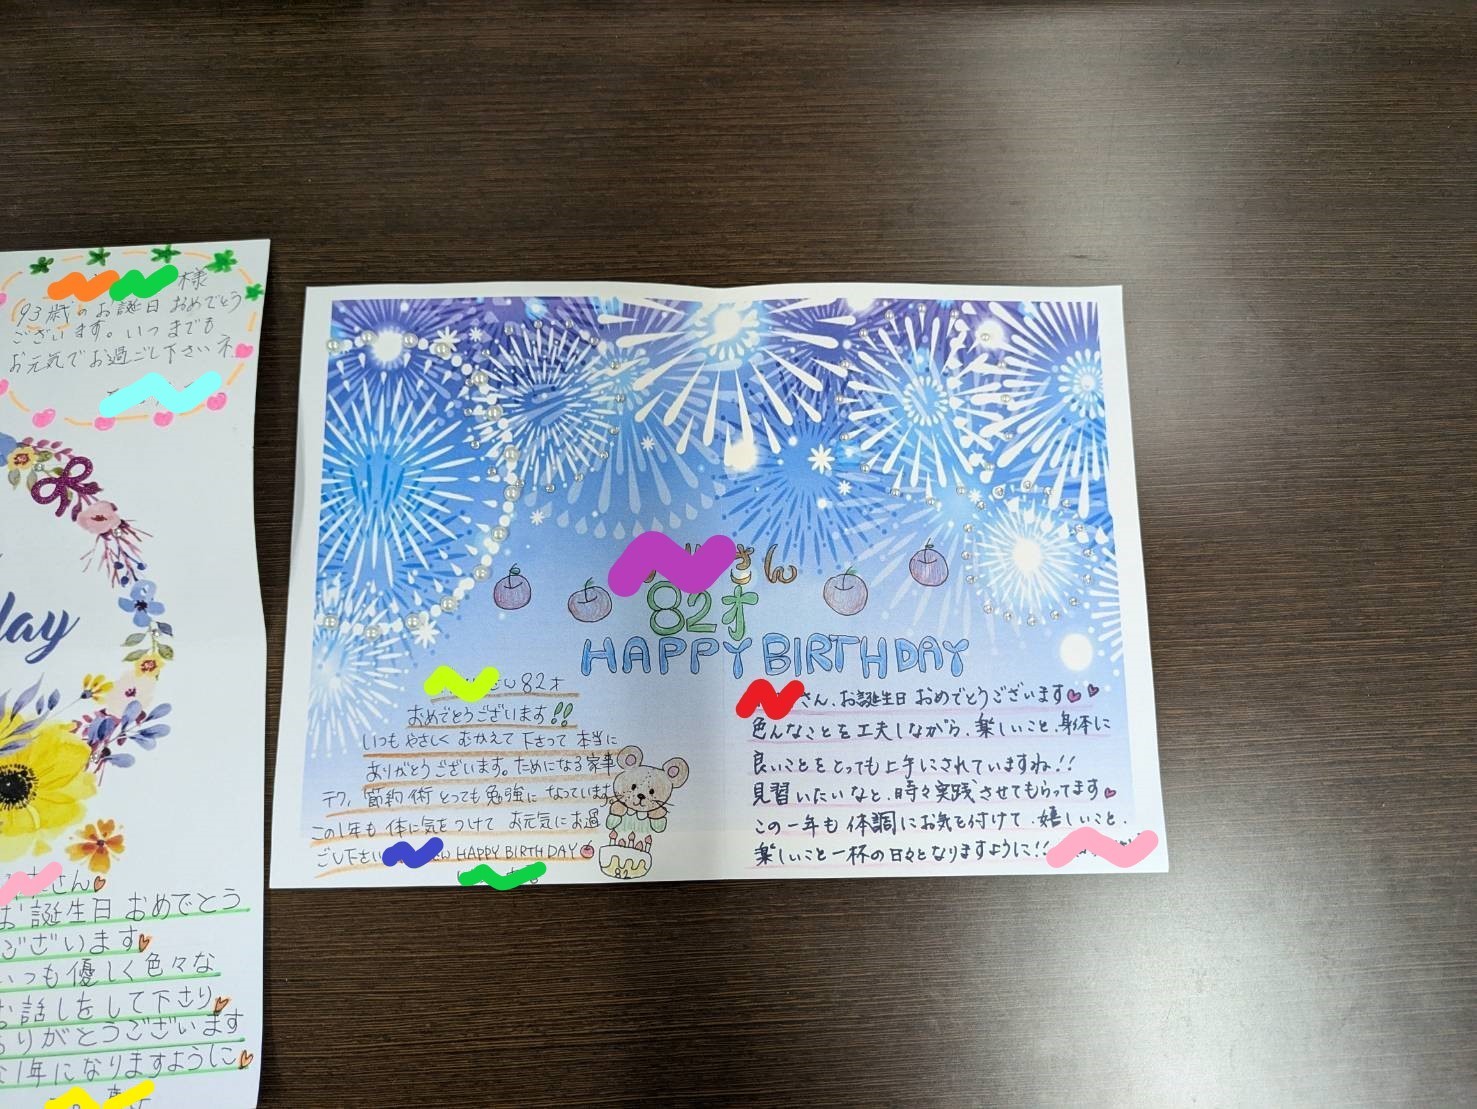 様
93歳のお誕生日おめでとう
ございます。いつまでも
お元気でお過ごし下さいネ
day
さん
お誕生日おめでとう
ございます
いつも優しく色々な
お話しをして下さり
ありがとうございます
1年になりますように
さん
82才
HAPPY BIRTHDAY
さん82才
おめでとうございます!!
いつもやさしくむかえて下さって本当に
ありがとうございます。ためになる家事
テク、節約術とっても勉強になっています。
この1年も体に気をつけてお元気にお過
ごし下さい HAPPY BIRTHDAY
82
さん、お誕生日おめでとうございます
色んなことを工夫しながら、楽しいこと、身体に
良いことをとっても上手にされていますね!!
見習いたいなと、時々実践させてもらってます
この一年も体調にお気を付けて、嬉しいこと、
楽しいこと一杯の日々となりますように!!